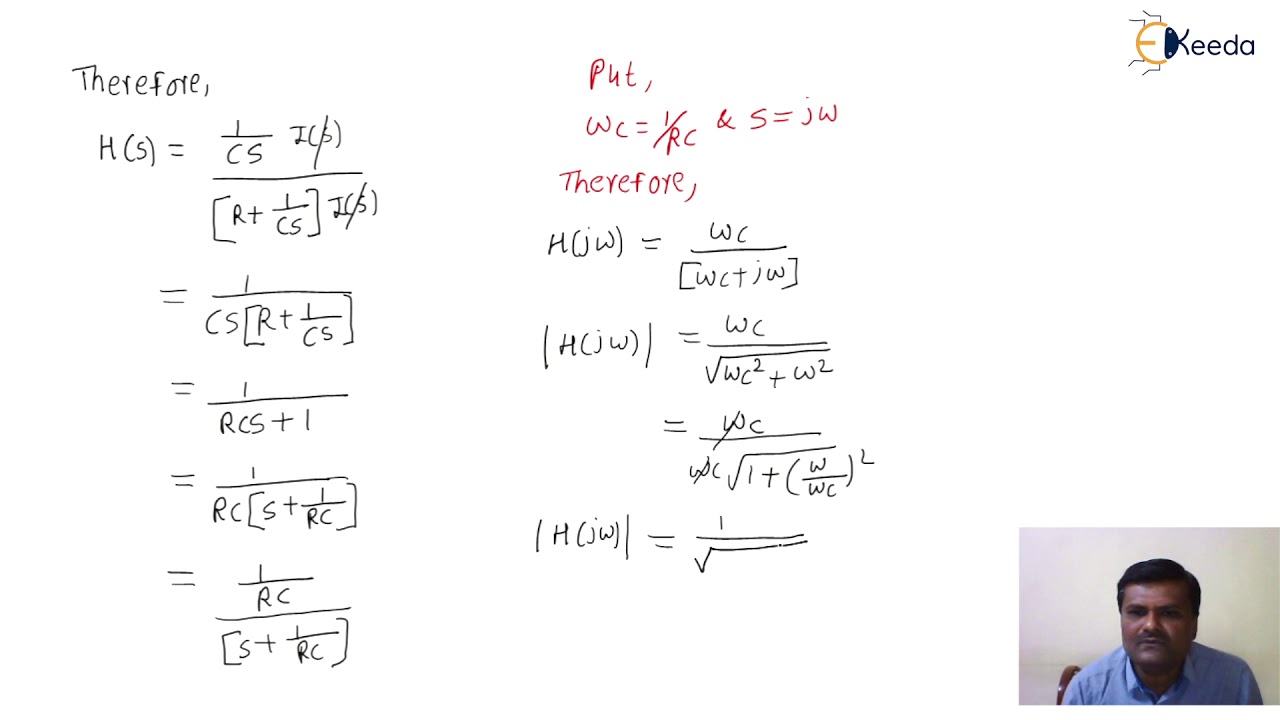 EKeeda
Therefore,
H(s) = 1/CS I(s) / [R + 1/CS] I(s)
= 1 / CS[R + 1/CS]
= 1 / RCS + 1
= 1 / RC[S + 1/RC]
= 1/RC / [S + 1/RC]
Put,
ωc = 1/RC & S = jω
Therefore,
H(jω) = ωc / [ωc + jω]
|H(jω)| = ωc / √ωc² + ω²
= ωc / ωc √1 + (ω/ωc)²
|H(jω)| = 1 / √